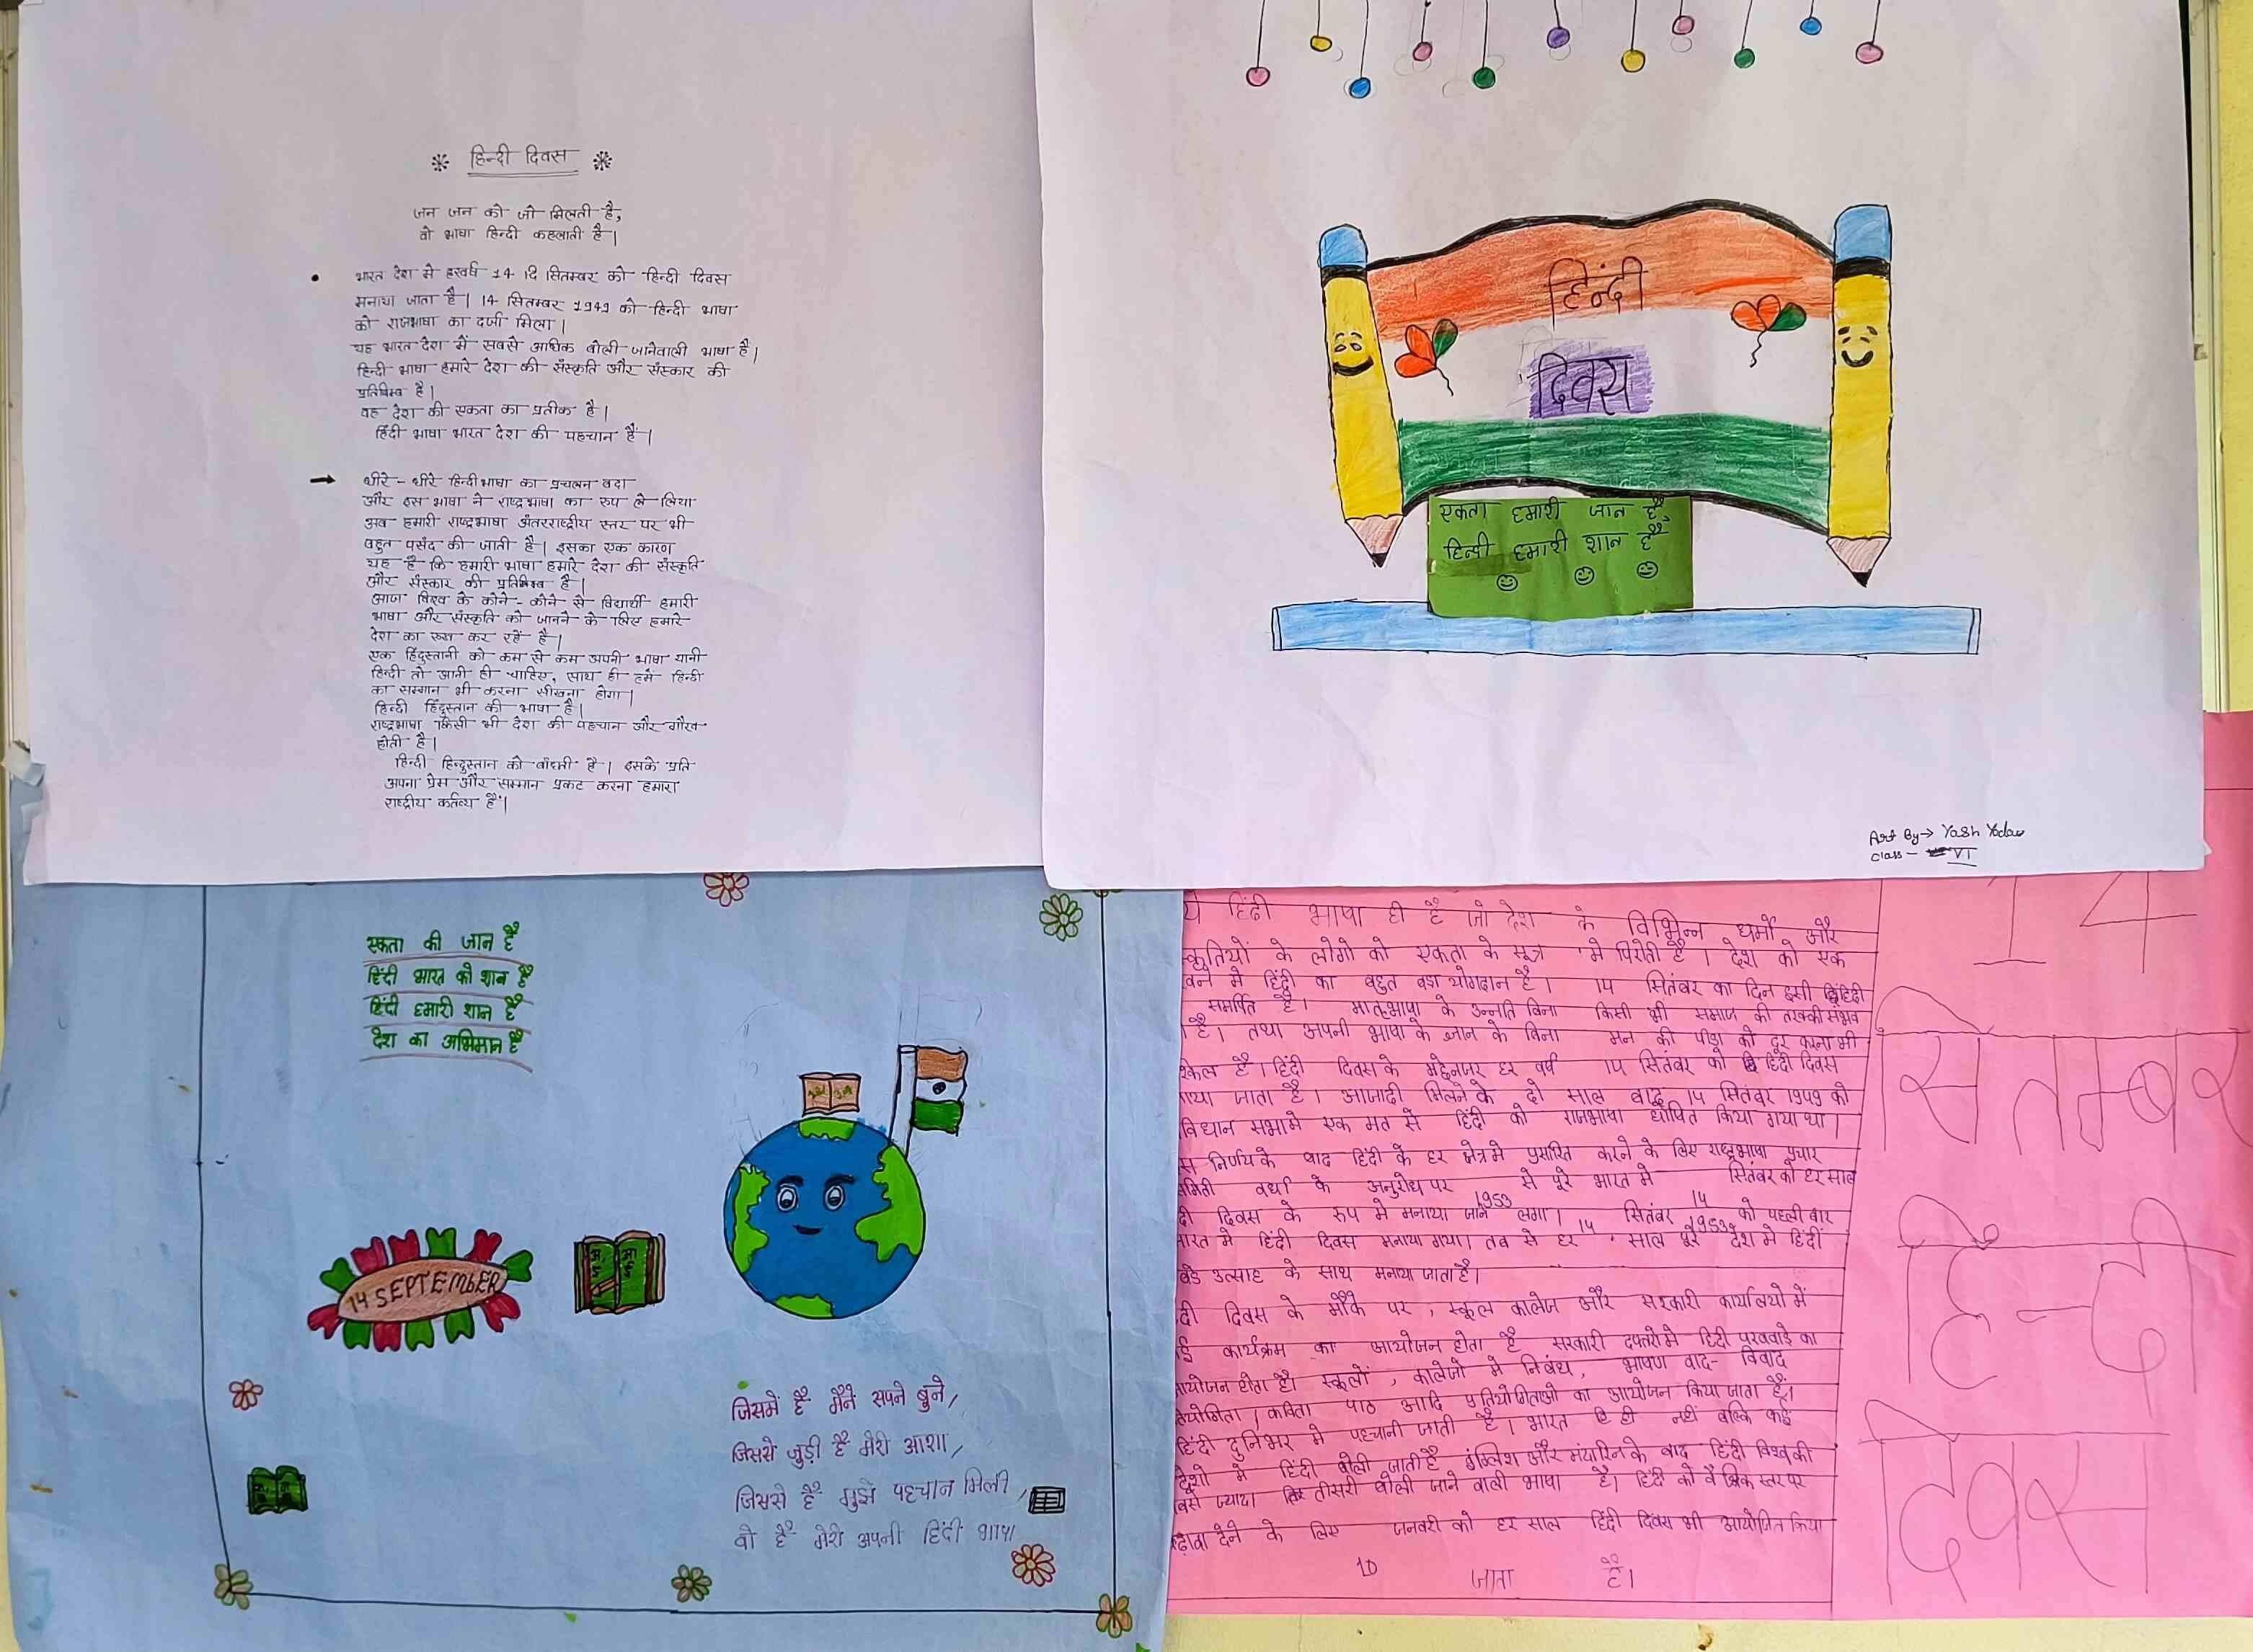 हिन्दी दिवस
जन जन को जो मिलती है,
वो भाषा हिन्दी कहलाती है।
भारत देश मे हरवर्ष 14 सितम्बर को हिन्दी दिवस
मनाया जाता है। 14 सितम्बर 1949 को हिन्दी भाषा
को राजभाषा का दर्जा मिला।
यह भारत देश में सबसे अधिक बोली जानेवाली भाषा है।
हिन्दी भाषा हमारे देश की संस्कृति और संस्कार की
प्रतिबिम्ब है।
वह देश की एकता का प्रतीक है।
हिंदी भाषा भारत देश की पहचान हैं।
→ धीरे - धीरे हिन्दी भाषा का प्रचलन बढा
और इस भाषा ने राष्ट्रभाषा का रुप ले लिया
अब हमारी राष्ट्रभाषा अंतरराष्ट्रीय स्तर पर भी
बहुत पसंद की जाती है। इसका एक कारण
यह है कि हमारी भाषा हमारे देश की संस्कृति
और संस्कार की प्रतिबिम्ब है।
आज विश्व के कोने - कोने से विद्यार्थी हमारी
भाषा और संस्कृति को जानने के लिए हमारे
देश का रुख कर रहें है।
एक हिंदुस्तानी को कम से कम अपनी भाषा यानी
हिन्दी तो आनी ही चाहिए, साथ ही हमें हिन्दी
का सम्मान भी करना सीखना होगा।
हिन्दी हिंदुस्तान की भाषा है।
राष्ट्रभाषा किसी भी देश की पहचान और गौरव
होती है।
हिन्दी हिन्दुस्तान को बाँधती है। इसके प्रति
अपना प्रेम और सम्मान प्रकट करना हमारा
राष्ट्रीय कर्तव्य हैं।
हिंदी
दिवस
एकता हमारी जान है,
हिन्दी हमारी शान है
Art By→ Yash Yadav
Class - VI
एकता की जान है
हिंदी भारत की शान है
हिंदी हमारी शान है
देश का अभिमान है
14 SEPTEMBER
जिसमें है मैने सपने बुने,
जिससे जुड़ी है मेरी आशा,
जिससे है मुझे पहचान मिली,
वो है मेरी अपनी हिंदी भाषा
ये हिंदी भाषा ही है जो देश के विभिन्न धर्मों और
कृतियों के लोगो को एकता के सूत्र मे पिरोती है। देश को एक
मे हिंदी का बहुत बडा योगदान है। 14 सितंबर का दिन इसी हिंदी
समर्पित है। मातृभाषा के उन्नति बिना किसी भी समाज की तरक्की संभव
है। तथा अपनी भाषा के ज्ञान के बिना मन की पीडा को दूर करना भी
है। हिंदी दिवस के मद्देनजर हर वर्ष 14 सितंबर को हिंदी दिवस
जाता है। आजादी मिलने के दो साल बाद 14 सितंबर 1949 को
विधान सभामे एक मत से हिंदी को राजभाषा घोषित किया गया था।
स निर्णय के बाद हिंदी के हर क्षेत्र मे प्रसारित करने के लिए राष्ट्रभाषा प्रचार
वर्धा के अनुरोध पर से पूरे भारत मे सितंबर को हर साल
दी दिवस के रुप मे मनाया जाने 1953 लगा। सितंबर 14 को पहली बार
भारत मे हिंदी दिवस मनाया गया। तब से हर 14 साल पूरे 1953 देश मे हिंदी
बडे उत्साह के साथ मनाया जाता है।
दी दिवस के मौके पर, स्कूल कालेज और सरकारी कार्यालयो में
ई कार्यक्रम का आयोजन होता है सरकारी दफ्तरो मे हिंदी पखवाडे का
आयोजन होता है। स्कूलों, कालेजो मे निबंध, भाषण वाद- विवाद
कविता पाठ आदि प्रतियोगिताओ का आयोजन किया जाता है।
हिंदी दुनिभर मे पहचानी जाती है। भारत ही नहीं बल्कि कई
देशो मे हिंदी बोली जाती है इंग्लिश और मंदारिन के बाद हिंदी विश्व की
ज्यादा तीसरी बोली जाने वाली भाषा है। हिंदी को वैश्विक स्तर पर
बढ़ावा देने के लिए जनवरी को हर साल हिंदी दिवस भी आयोजित किया
10 जाता है।
14
सितम्बर
हिन्दी
दिवस